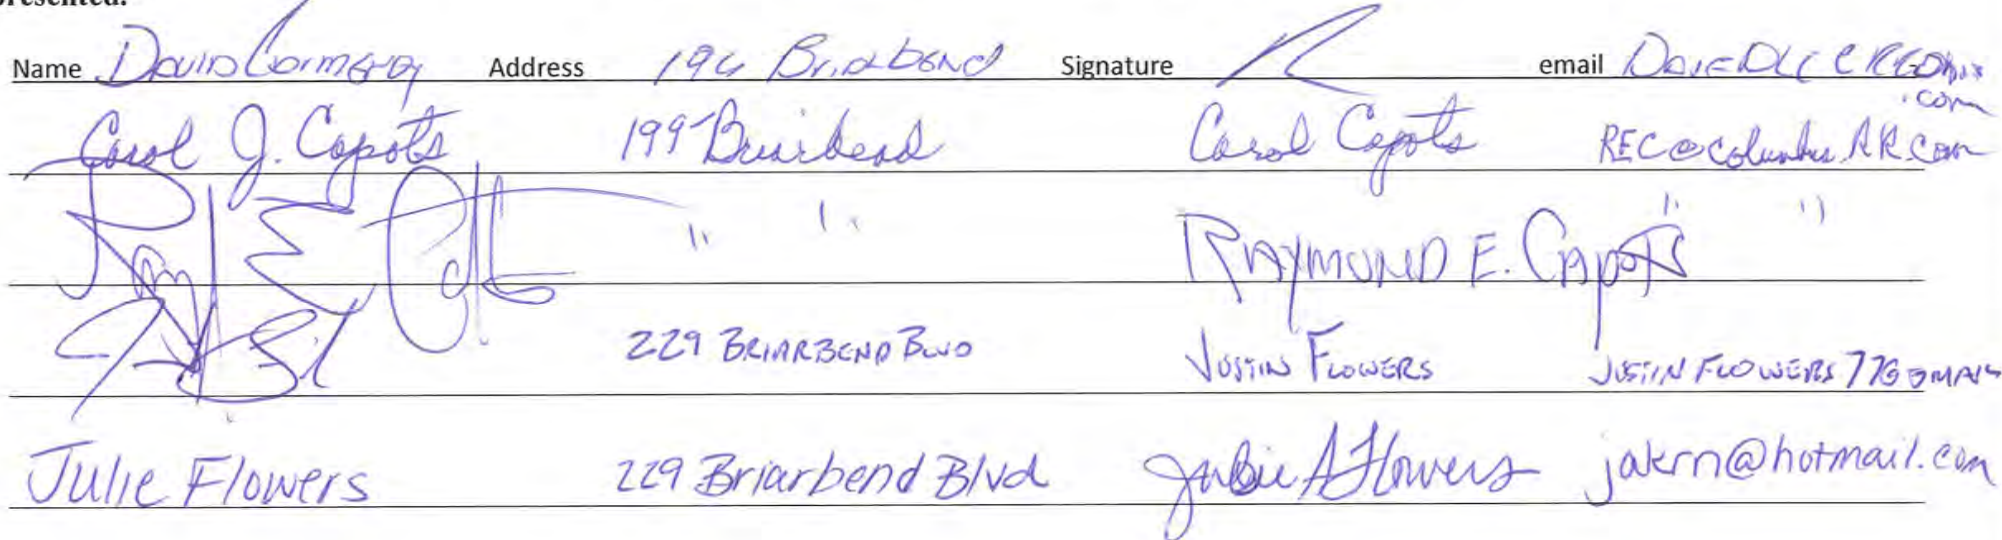 presented.
Name David Cormany Address 194 Briabend Signature email
.com
Carol J. Capots 199 Briarbend Carol Capots REC@columbus.RR.com
" " RAYMOND E. CAPOTS " "
229 BRIARBEND BLVD JUSTIN FLOWERS JUSTINFLOWERS77@GMAIL
Julie Flowers 229 Briarbend Blvd Julie A Flowers jakrn@hotmail.com